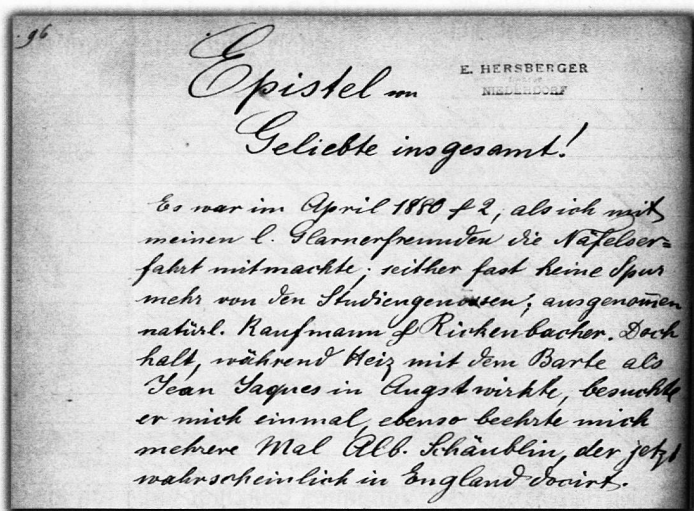 96
Epistel von
E. HERSBERGER
NIEDERDORF
Geliebte insgesamt!
Es war im April 1880 & 2, als ich mit
meinen l. Glarnerfreunden die Näfelser=
fahrt mitmachte; seither fast keine Spur
mehr von den Studiengenossen; ausgenom̅en
natürl. Kaufmann & Rickenbacher. Doch
halt, während Heiz mit dem Barte als
Jean Jaques in Augst wirkte, besuchte
er mich einmal, ebenso beehrte mich
mehrere Mal Alb. Schäublin, der jetzt
wahrscheinlich in England docirt.